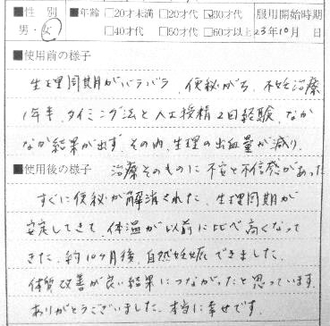 ■性 別 ■年齢 □20才未満 □20才代 ☑30才代 服用開始時期
男・女 □40才代 □50才代 □60才以上 23年10月 日
■使用前の様子
生理周期がバラバラ、便秘がち、不妊治療
1年半、タイミング法と人工授精2回経験、なか
なか結果が出ず、その内、生理の出血量が減り、
■使用後の様子 治療そのものに不安と不信感があった
すぐに便秘が解消された、生理周期が
安定してきて、体温が以前に比べ高くなって
きた、約10ヶ月後、自然妊娠できました。
体質改善が良い結果につながったと思っています。
ありがとうございました。本当に幸せです。